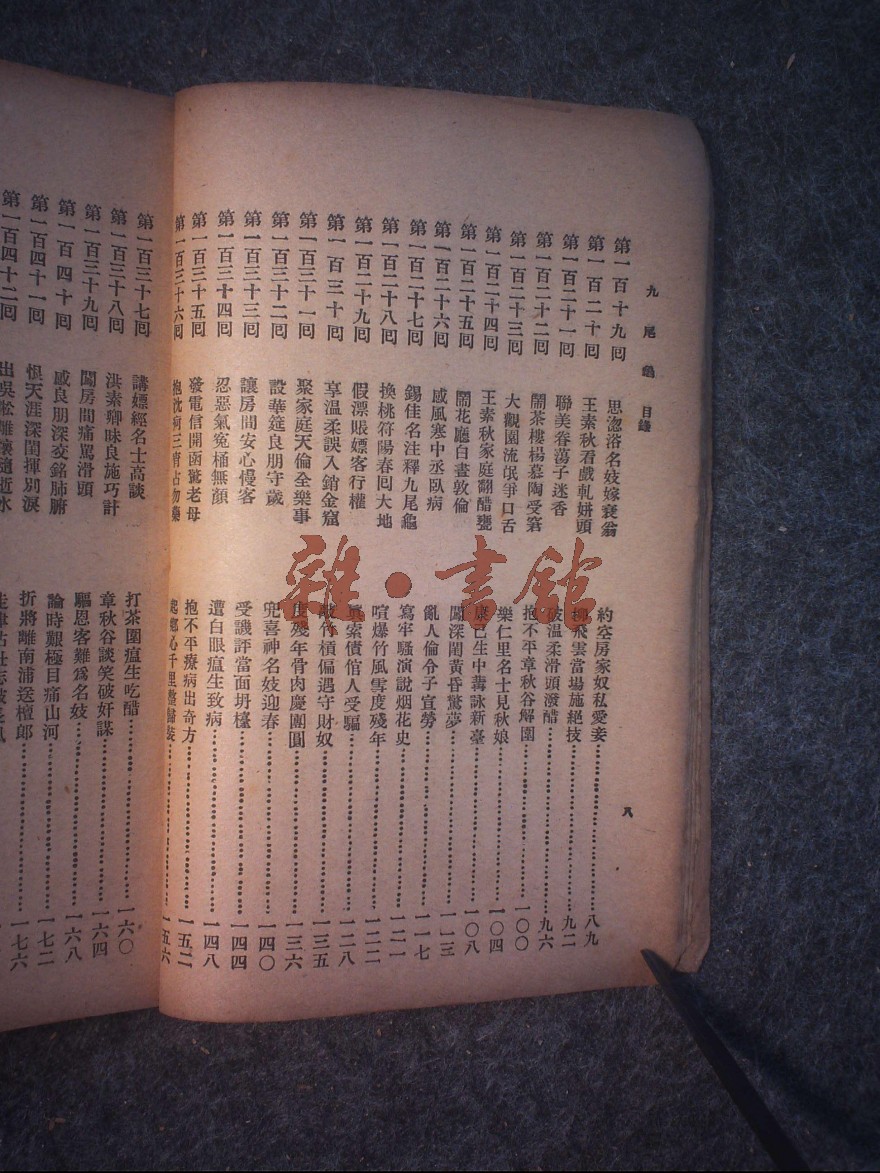 九尾龜 目錄
八
第一百十九回 思淴浴名妓嫁衰翁 約空房家奴私愛妾 八九
第一百二十回 王素秋看戲軋姘頭 柳飛雲當場施絕技 九二
第一百二十一回 聯美眷蕩子迷香 破溫柔滑頭潑醋 九六
第一百二十二回 鬧茶樓楊慕陶受窘 抱不平章秋谷解圍 一〇〇
第一百二十三回 大觀園流氓爭口舌 樂仁里名士見秋娘 一〇四
第一百二十四回 王素秋家庭翻醋甕 康己生中冓詠新臺 一〇八
第一百二十五回 鬧花廳白晝敦倫 闖深閨黃昏驚夢 一一三
第一百二十六回 感風寒中丞臥病 亂人倫令子宣勞 一一七
第一百二十七回 錫佳名注釋九尾龜 寫牢騷演說烟花史 一二一
第一百二十八回 換桃符陽春回大地 喧爆竹風雪度殘年 一二二
第一百二十九回 假漂賬嫖客行權 索債倌人受驅 一二八
第一百三十回 享溫柔誤入銷金窟 敲竹槓偏遇守財奴 一三五
第一百三十一回 聚家庭天倫全樂事 度殘年骨肉慶團圓 一三六
第一百三十二回 設華筵良朋守歲 兜喜神名妓迎春 一四〇
第一百三十三回 讓房間安心慢客 受譏評當面坍檯 一四四
第一百三十四回 忍惡氣冤桶無顏 遭白眼瘟生致病 一四八
第一百三十五回 發電信開函驚老母 抱不平療病出奇方 一五二
第一百三十六回 抱沈疴三宵占勿藥 起鄉心千里整歸裝 一五六
第一百三十七回 講嫖經名士高談 打茶圍瘟生吃醋 一六〇
第一百三十八回 洪素卿昧良施巧計 章秋谷談笑破奸謀 一六四
第一百三十九回 鬧房間痛罵滑頭 驅恩客難爲名妓 一六八
第一百四十回 感良朋深交銘肺腑 論時艱極目痛山河 一七二
第一百四十一回 恨天涯深閨揮別淚 折將離南浦送檀郎 一七六
第一百四十二回 出吳淞離懷隨逝水
雜·書館